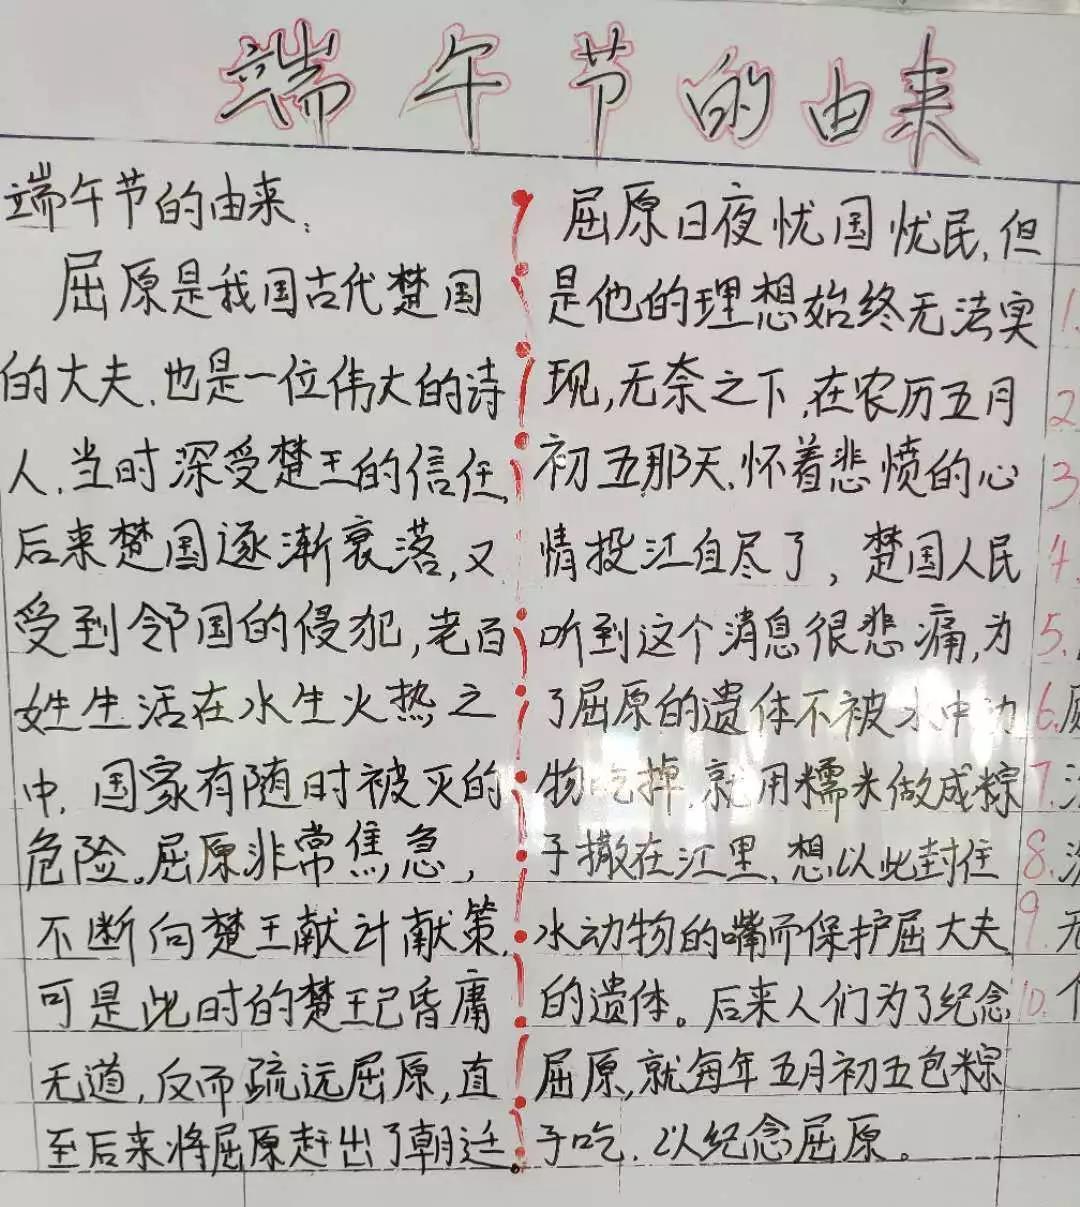 端午节的由来
端午节的由来:
屈原是我国古代楚国
的大夫.也是一位伟大的诗
人.当时深受楚王的信任,
后来楚国逐渐衰落,又
受到邻国的侵犯,老百
姓生活在水生火热之
中,国家有随时被灭的
危险。屈原非常焦急,
不断向楚王献计献策,
可是此时的楚王已昏庸
无道,反而疏远屈原,直
至后来将屈原赶出了朝廷。
屈原日夜忧国忧民,但
是他的理想始终无法实
现,无奈之下,在农历五月
初五那天,怀着悲愤的心
情投江自尽了,楚国人民
听到这个消息很悲痛,为
了屈原的遗体不被水中动
物吃掉,就用糯米做成粽
子撒在江里,想以此封住
水动物的嘴而保护屈大夫
的遗体。后来人们为了纪念
屈原,就每年五月初五包粽
子吃.以纪念屈原。
1.
2
3.
4.
5.
6.
7.
8.
9.
10.